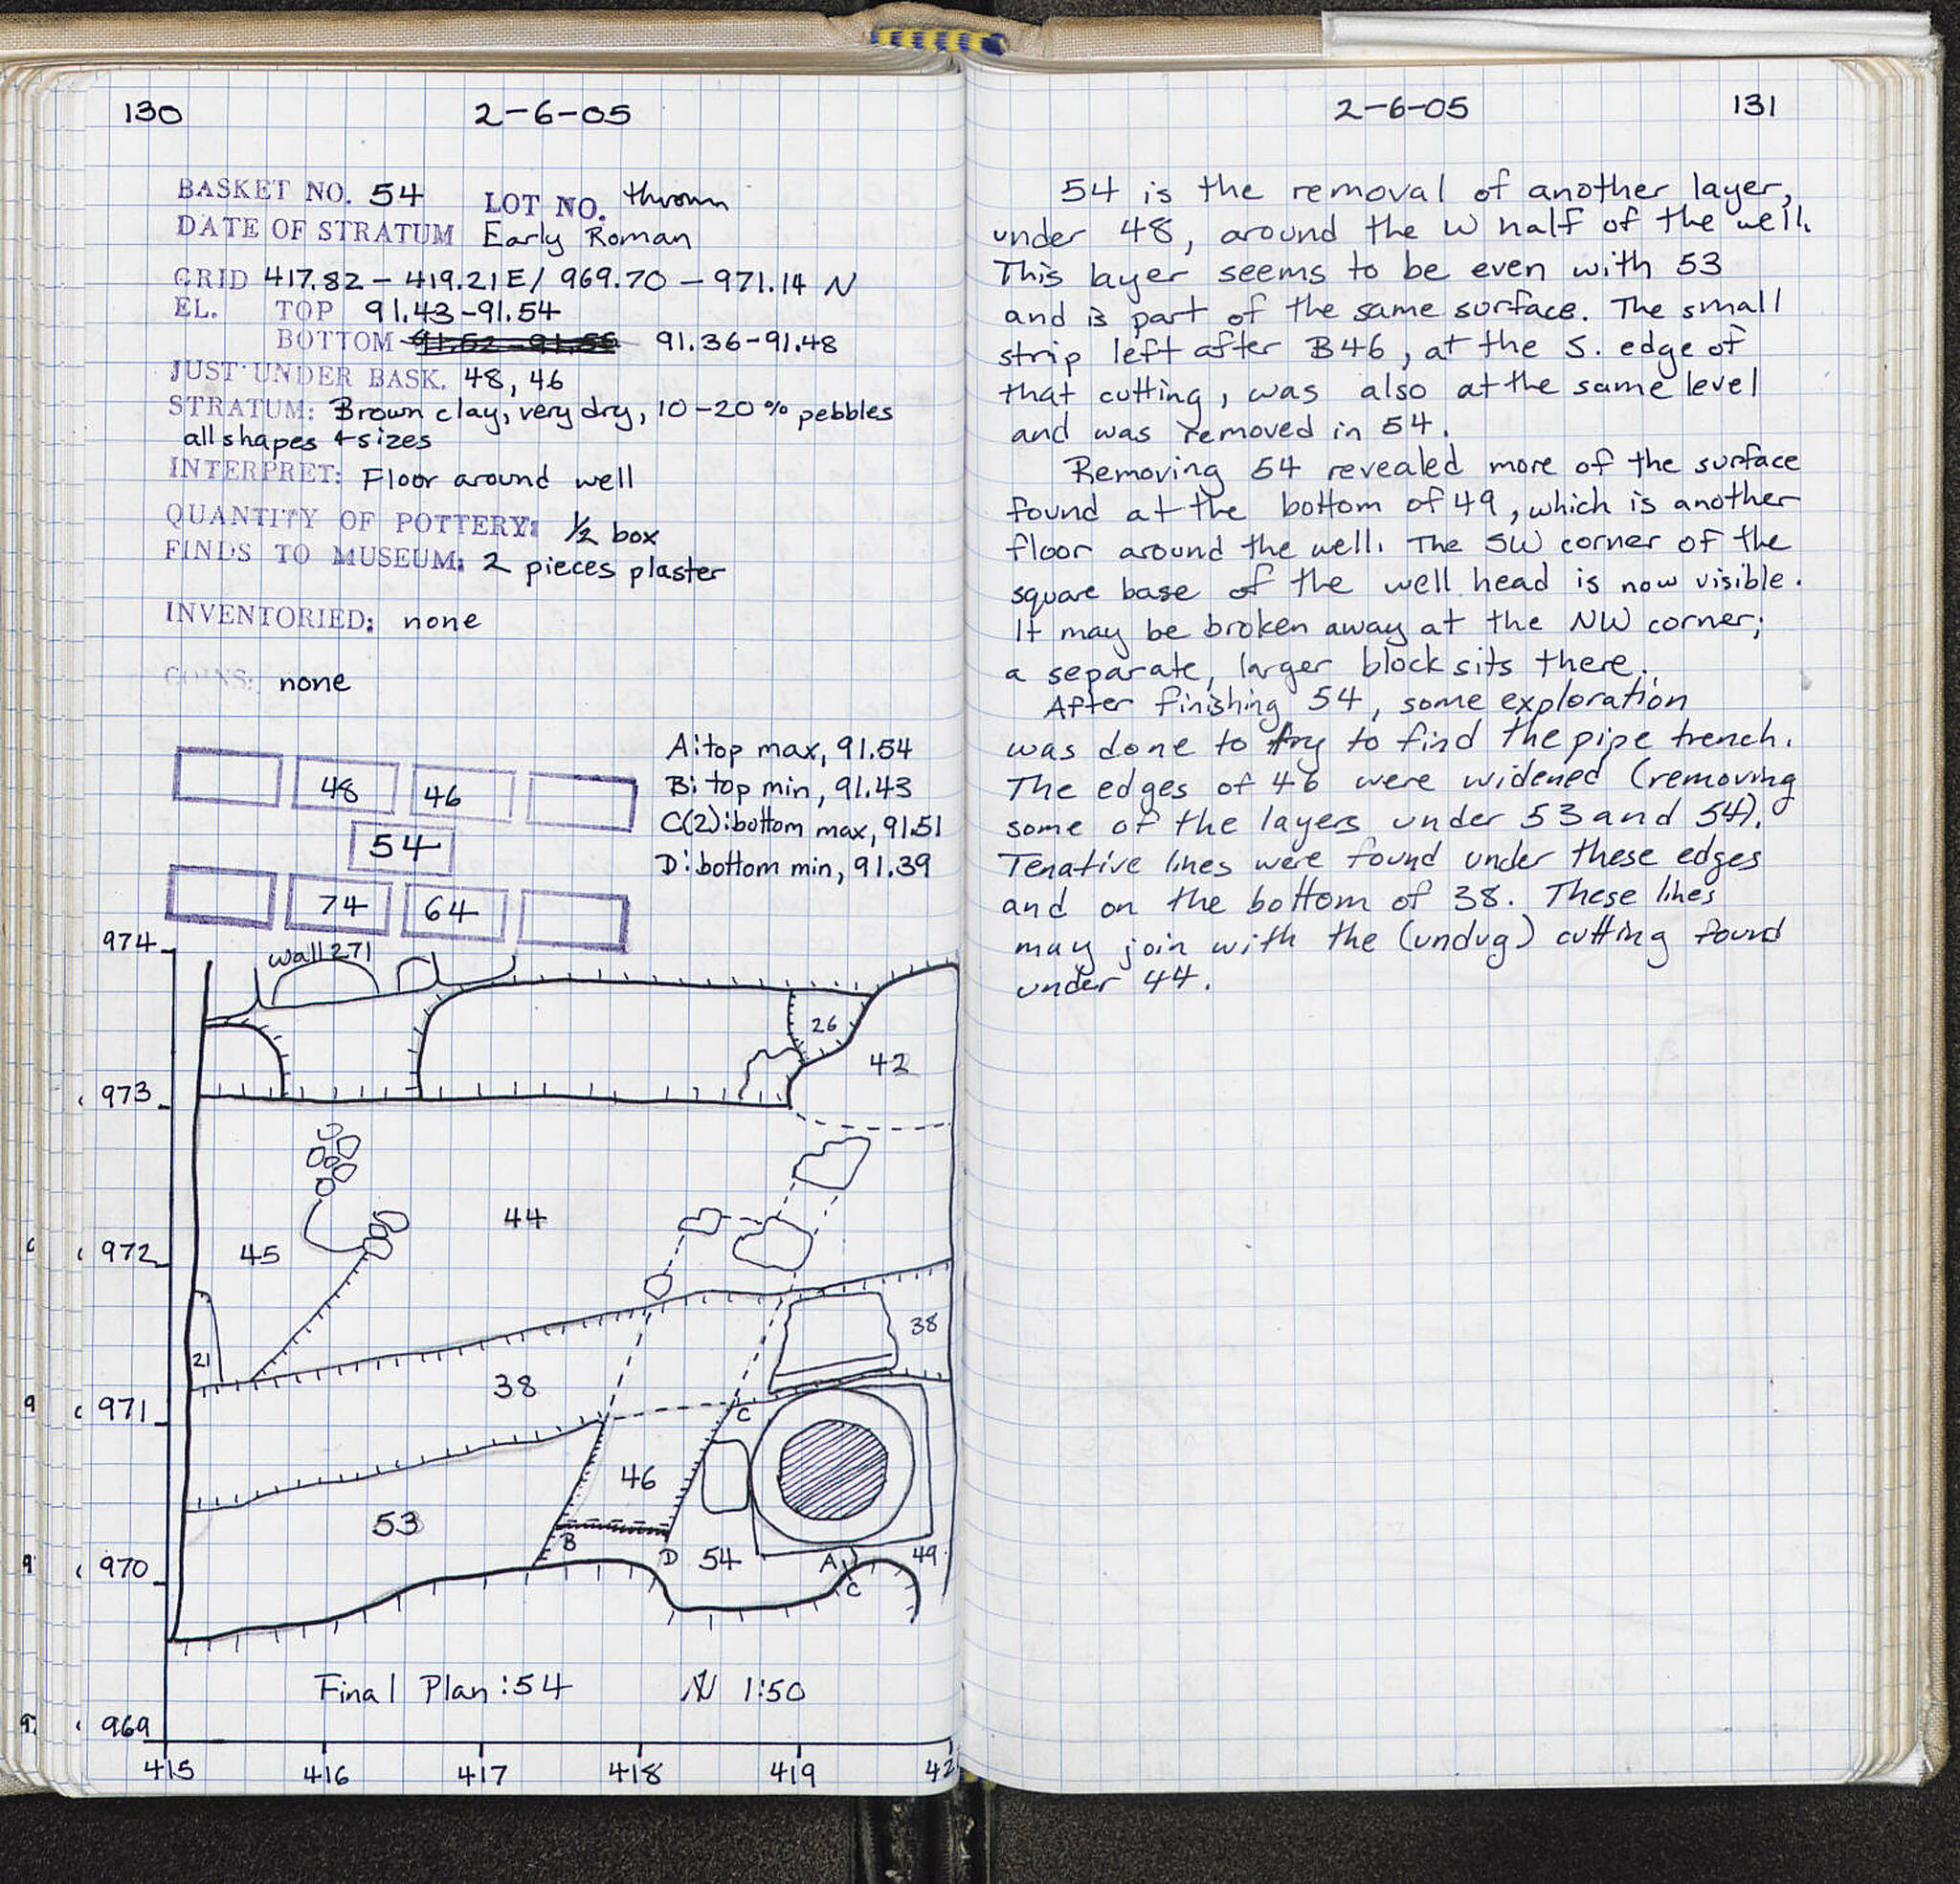 130
2-6-05
BASKET NO. 54 LOT NO. thrown
DATE OF STRATUM Early Roman
GRID 417.82 - 419.21 E/ 969.70 - 971.14 N
EL. TOP 91.43-91.54
BOTTOM 91.36-91.48
JUST UNDER BASK. 48, 46
STRATUM: Brown clay, very dry, 10-20% pebbles
all shapes + sizes
INTERPRET: Floor around well
QUANTITY OF POTTERY: 1/2 box
FINDS TO MUSEUM: 2 pieces plaster
INVENTORIED: none
COINS: none
48 46
54
74 64
A: top max, 91.54
B: top min, 91.43
C(2): bottom max, 91.51
D: bottom min, 91.39
974
wall 271
26
42
973
44
45
972
38
21
38
971
C
46
53
B
D
54
A
49
C
970
Final Plan: 54 N 1:50
969
415 416 417 418 419 42
2-6-05
131
54 is the removal of another layer,
under 48, around the W half of the well.
This layer seems to be even with 53
and is part of the same surface. The small
strip left after B46, at the S. edge of
that cutting, was also at the same level
and was removed in 54.
Removing 54 revealed more of the surface
found at the bottom of 49, which is another
floor around the well. The SW corner of the
square base of the well head is now visible.
It may be broken away at the NW corner;
a separate, larger block sits there.
After finishing 54, some exploration
was done to try to find the pipe trench.
The edges of 46 were widened (removing
some of the layers under 53 and 54).
Tenative lines were found under these edges
and on the bottom of 38. These lines
may join with the (undug) cutting found
under 44.